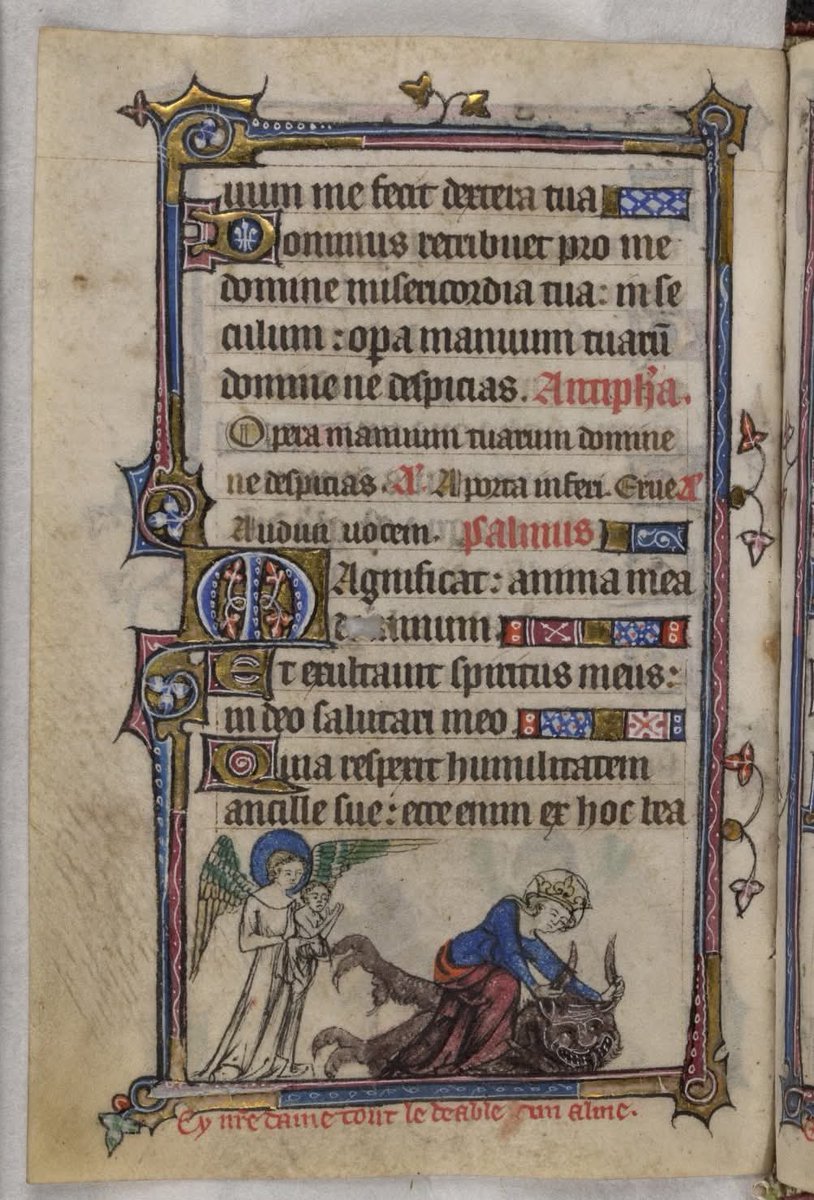 nuum me fecit dextera tua
Dominus retribuet pro me
domine misericordia tua: in se
culum: opa manuum tuarū
domine ne despicias. Antiph'a.
Opera manuum tuarum domine
ne despicias. A'. A porta inferi. Erue
Audiui uocem. Psalmus
Magnificat: anima mea
Et exultauit spiritus meus:
in deo salutari meo
Quia respexit humilitatem
ancille sue: ecce enim ex hoc bea
Cy nre dame tout le deable alme.